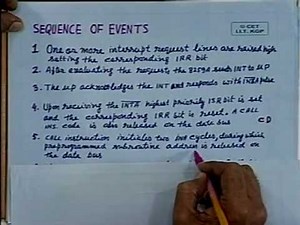 SEQUENCE OF EVENTS
© CET
I.I.T. KGP
1 One or more interrupt request lines are raised high
setting the corresponding IRR bit
2. After evaluating the requests the 8259A sends INT to µP
3. The µP acknowledges the INT and responds with INTA pulse
4. Upon receiving the INTA highest priority ISR bit is set
and the corresponding IRR bit is reset. A CALL
ins. code is also released on the data bus CD
5. CALL instruction initiates two cycles, during which
preprogrammed subroutine address is released on
the data bus